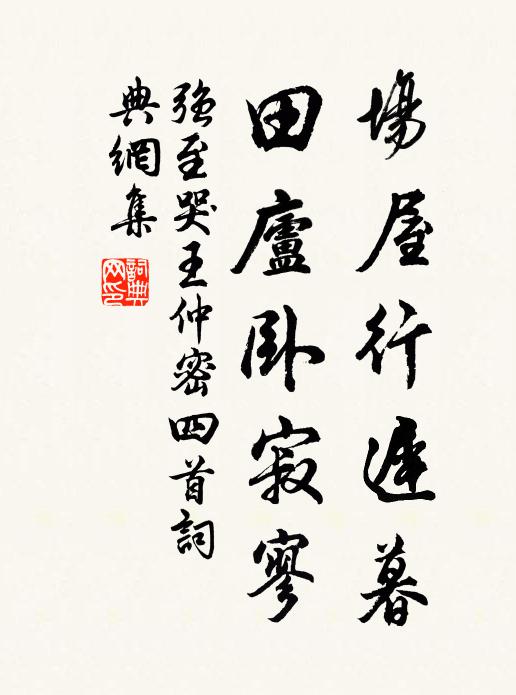 場屋行遲暮
田廬臥寂寥
強至哭王仲密四首詞
典網集
詞典
网印